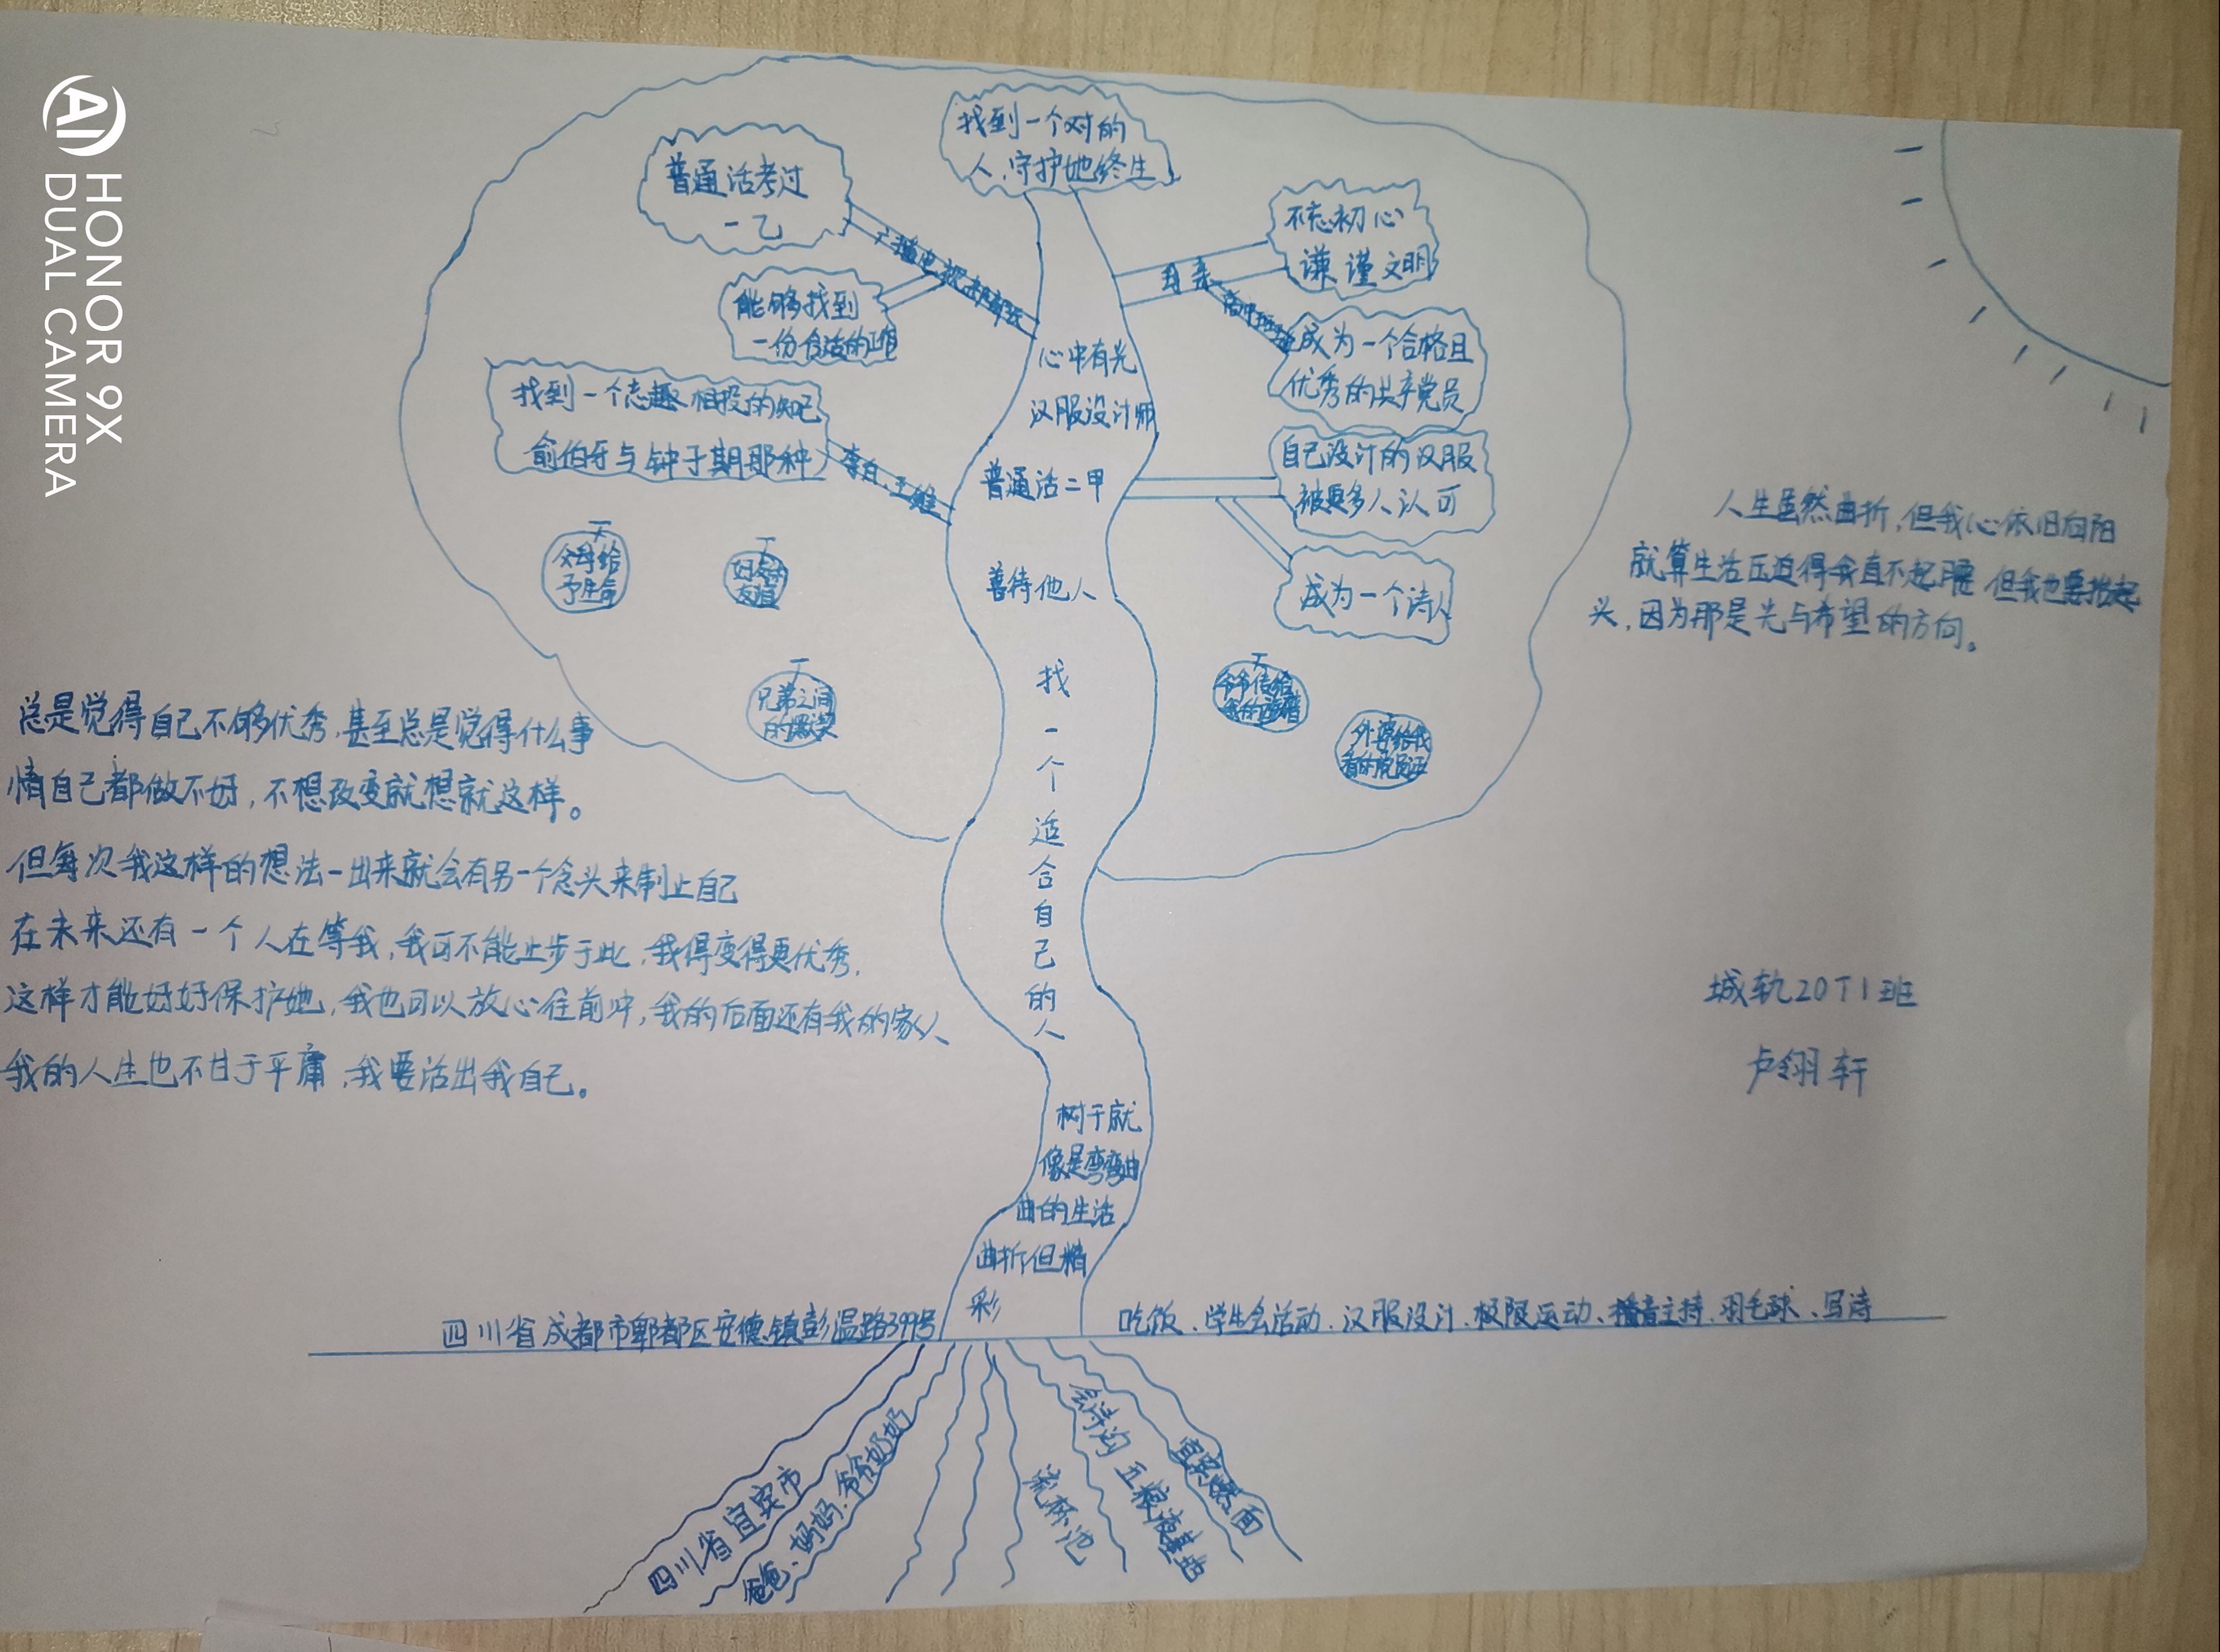 找到一个对的
人,守护她终生
普通话考过
一乙
广播电视部部长
能够找到
一份合适的工作
找到一个志趣相投的知己
俞伯牙与钟子期那种
李白、王维
不忘初心
谦谨文明
母亲
成为一个合格且
优秀的共产党员
自己设计的汉服
被更多人认可
成为一个诗人
心中有光
汉服设计师
普通话二甲
善待他人
找一个适合自己的人
树干就
像是弯弯曲
曲的生活
曲折但精
彩
父母给
予生命
兄弟之间
的
外婆给我
看的党员证
人生虽然曲折,但我心依旧向阳
就算生活压迫得我直不起腰 但我也要抬起
头,因为那是光与希望的方向。
总是觉得自己不够优秀,甚至总是觉得什么事
情自己都做不好,不想改变就想就这样。
但每次我这样的想法一出来就会有另一个念头来制止自己
在未来还有一个人在等我,我可不能止步于此,我得变得更优秀,
这样才能好好保护她,我也可以放心往前冲,我的后面还有我的家人
我的人生也不甘于平庸,我要活出我自己。
城轨20T1班
卢翎轩
四川省成都市郫都区安德镇彭温路399号
吃饭、学生会活动、汉服设计、极限运动、播音主持、羽毛球、写诗
四川省宜宾市
爸爸、妈妈、爷爷奶奶
流杯池
五粮液基地
宜宾燃面
HONOR 9X
DUAL CAMERA